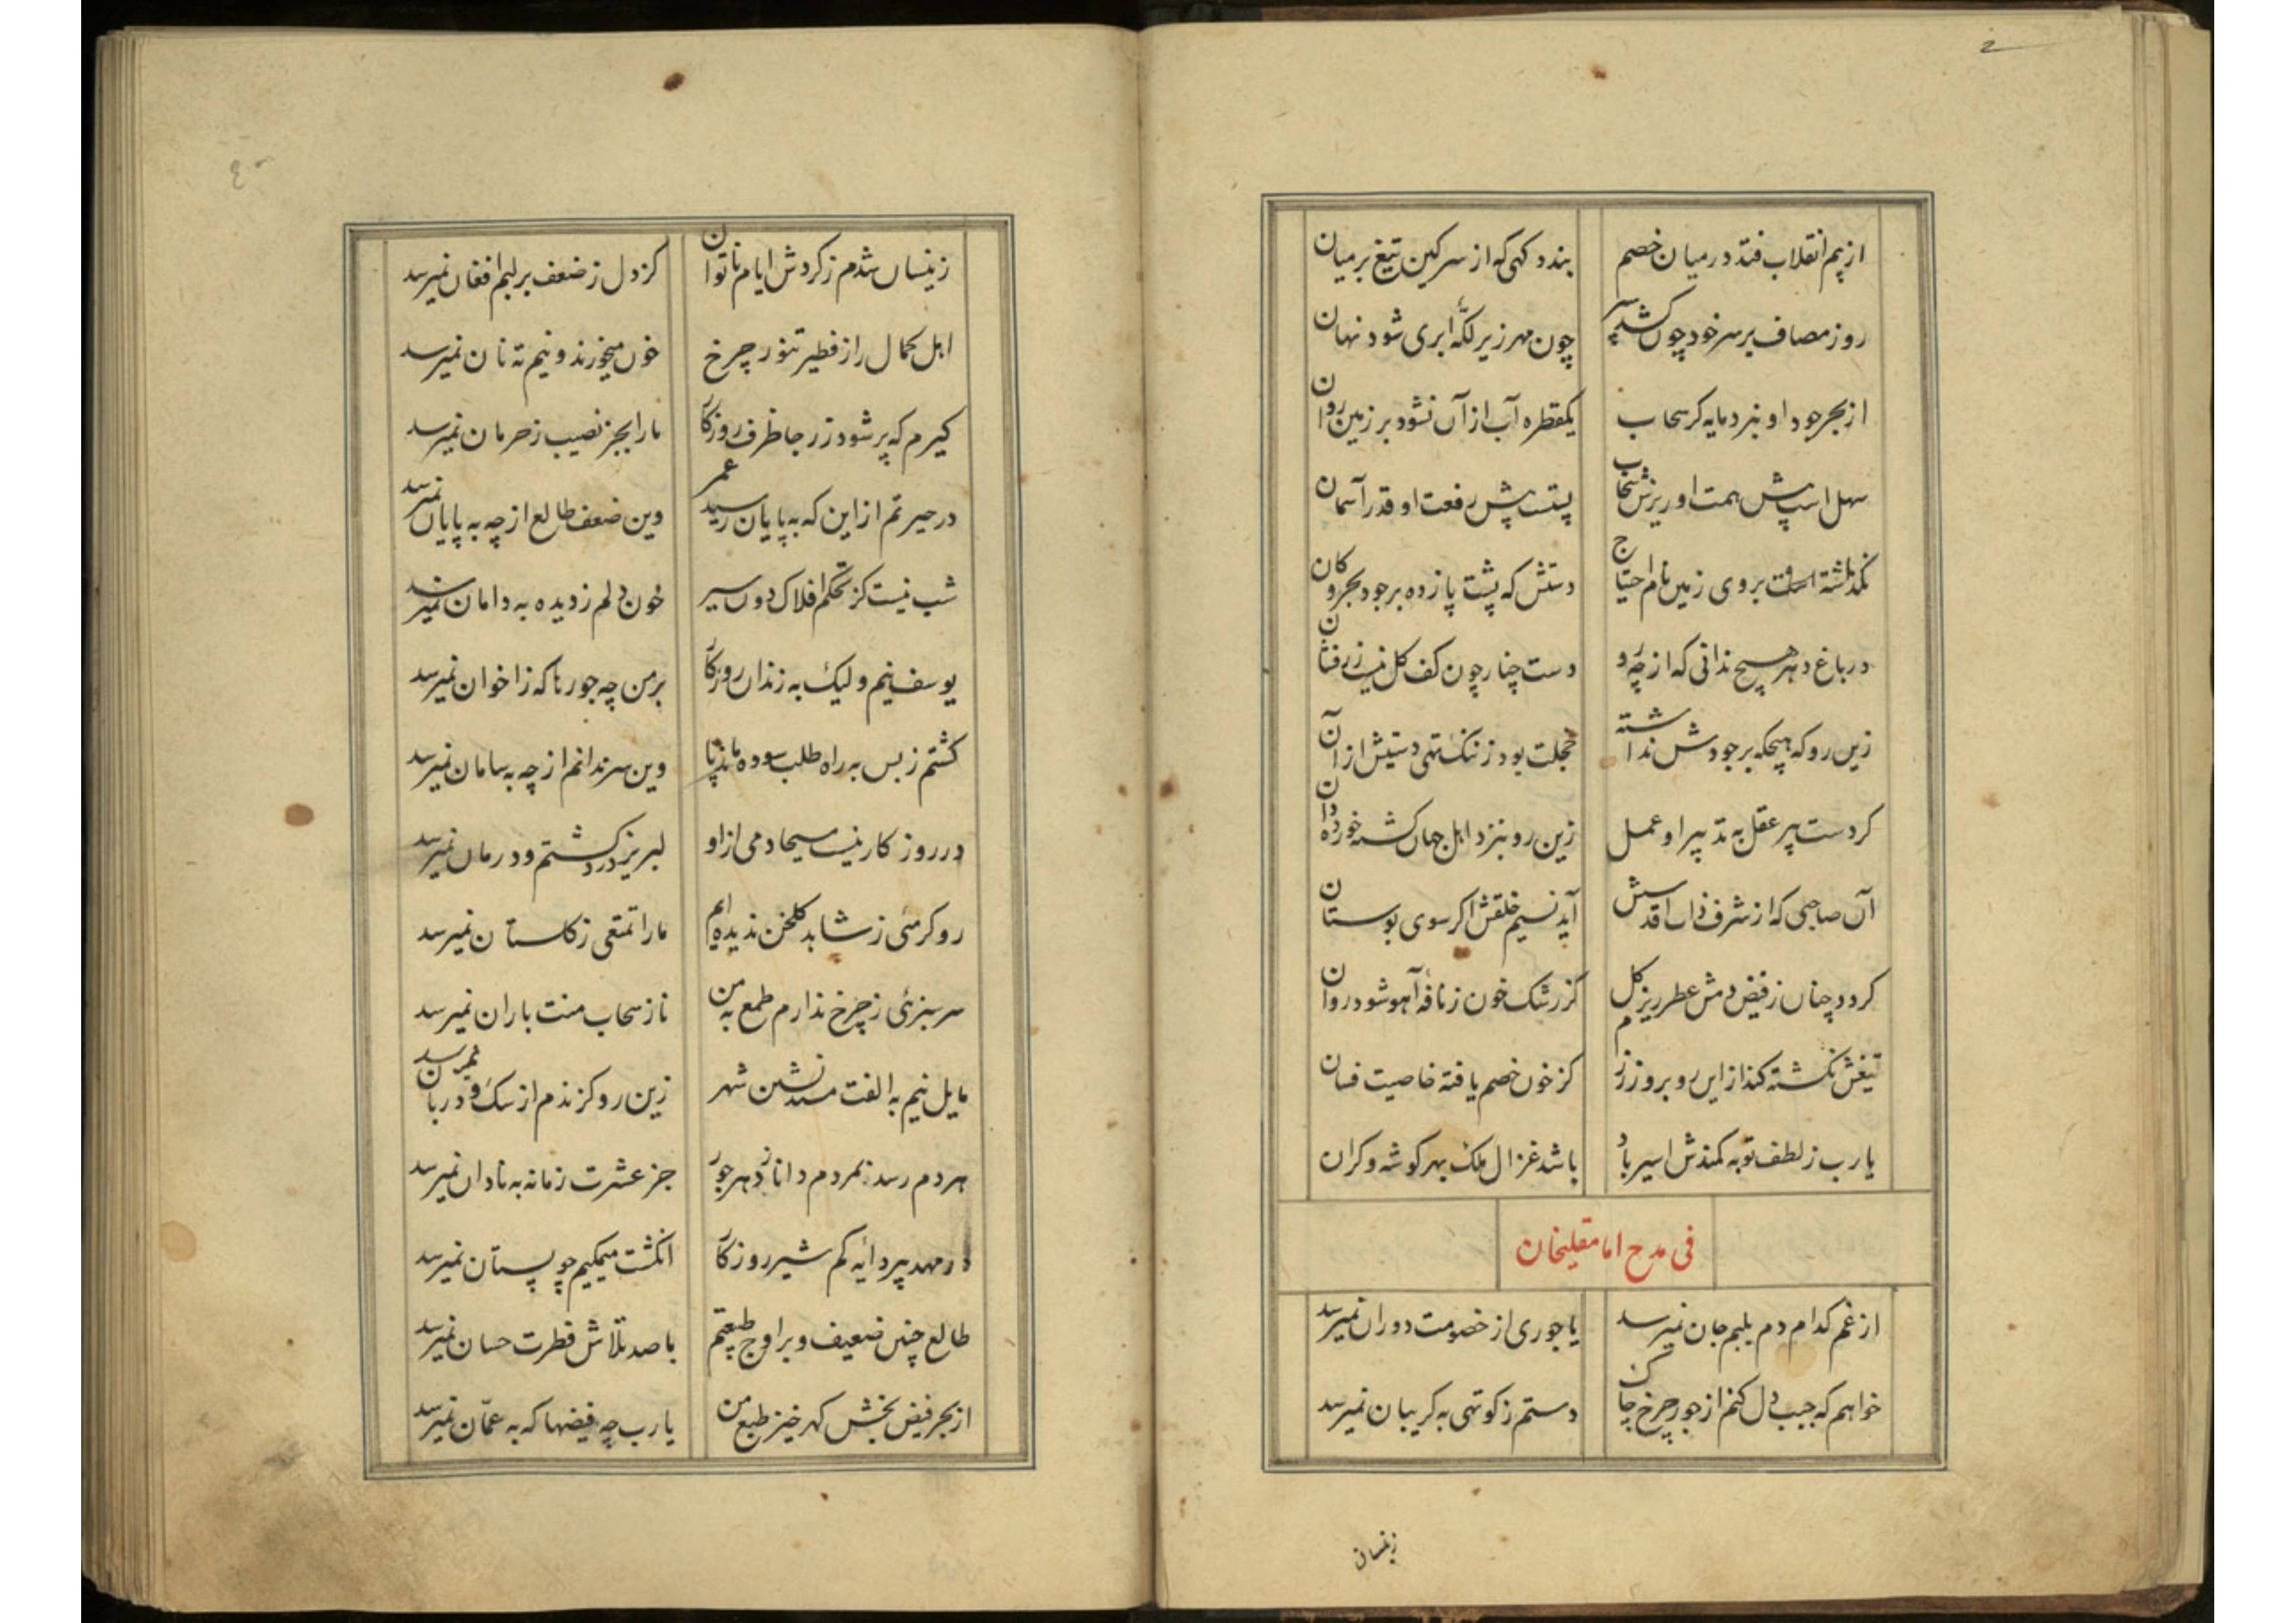 از بیم انقلاب فتد در میان خصم
بندد کهی که از سر کین تیغ بر میان
روز مصاف بر سر خود چون کشد سپر
چون مهر زیر لکهٔ ابری شود نهان
از بحر جود او نبرد مایه کر سحاب
یکقطره آب از آن نشود بر زمین روان
سهل است پیش همت او ریزش سحاب
پستست پیش رفعت او قدر آسمان
نکذاشته است بروی زمین نام احتیاج
دستش که پشت پا زده بر جود بحر و کان
در باغ دهر هیچ ندانی که از چه رو
دست چنار چون کف کل نیست زرفشان
زین رو که هیچکه بر جودش نداشته
خجلت بود ز ننک تهی دستیش از آن
کردست پیر عقل به تدبیر او عمل
زین رو بنزد اهل جهان کشته خورده دان
آن صاحبی که از شرف ذات اقدسش
آید نسیم خلقش اکر سوی بوستان
کردد چنان ز فیض دمش عطر ریز کل
کز رشک خون ز نافهٔ آهو شود روان
تیغش نکشته کند از این رو بروز رزم
کز خون خصم یافته خاصیت فسان
یارب ز لطف تو به کمندش اسیر باد
باشد غزال ملک بهر کوشه و کران
فی مدح امامقلیخان
از غم کدام دم بلبم جان نمیرسد
یا جوری از خصومت دوران نمیرسد
خواهم که جیب دل کنم از جور چرخ چاک
دستم ز کوتهی به کریبان نمیرسد
زینسان
زینسان شدم ز کردش ایام ناتوان
کز دل ز ضعف بر لبم افغان نمیرسد
اهل کمال را ز فطیر تنور چرخ
خون میخورند و نیم ته نان نمیرسد
کیرم که پر شود ز رجا ظرف روزکار
ما را بجز نصیب ز حرمان نمیرسد
در حیرتم از این که به پایان رسید عمر
وین ضعف طالع از چه به پایان نمیرسد
شب نیست کز تحکم افلاک دون سیر
خون دلم ز دیده به دامان نمیرسد
یوسف نیم ولیک به زندان روزکار
بر من چه جورها که ز اخوان نمیرسد
کشتم ز بس به راه طلب سوده ماند پا
وین سر ندانم از چه به سامان نمیرسد
در روزکار نیست مسیحا دمی از او
لبریز درد کشتم و درمان نمیرسد
رو کرمئی ز شاهد کلخن ندیده‌ایم
ما را تمتعی ز کلستان نمیرسد
سرسبزئی ز چرخ ندارم طمع به من
ناز سحاب منت باران نمیرسد
مایل نیم به الفت مسندنشین شهر
زین رو کزندم از سک و دربان نمیرسد
هر دم رسد بمردم دانا ز دهر جور
جز عشرت زمانه به نادان نمیرسد
در مهد پیر دایه کم شیر روزکار
انکشت میمکیم چو پستان نمیرسد
طالع چنین ضعیف و بر اوج طبیعتم
با صد تلاش فطرت حسان نمیرسد
از بحر فیض بخش کهر خیز طبع من
یارب چه فیضها که به عمّان نمیرسد